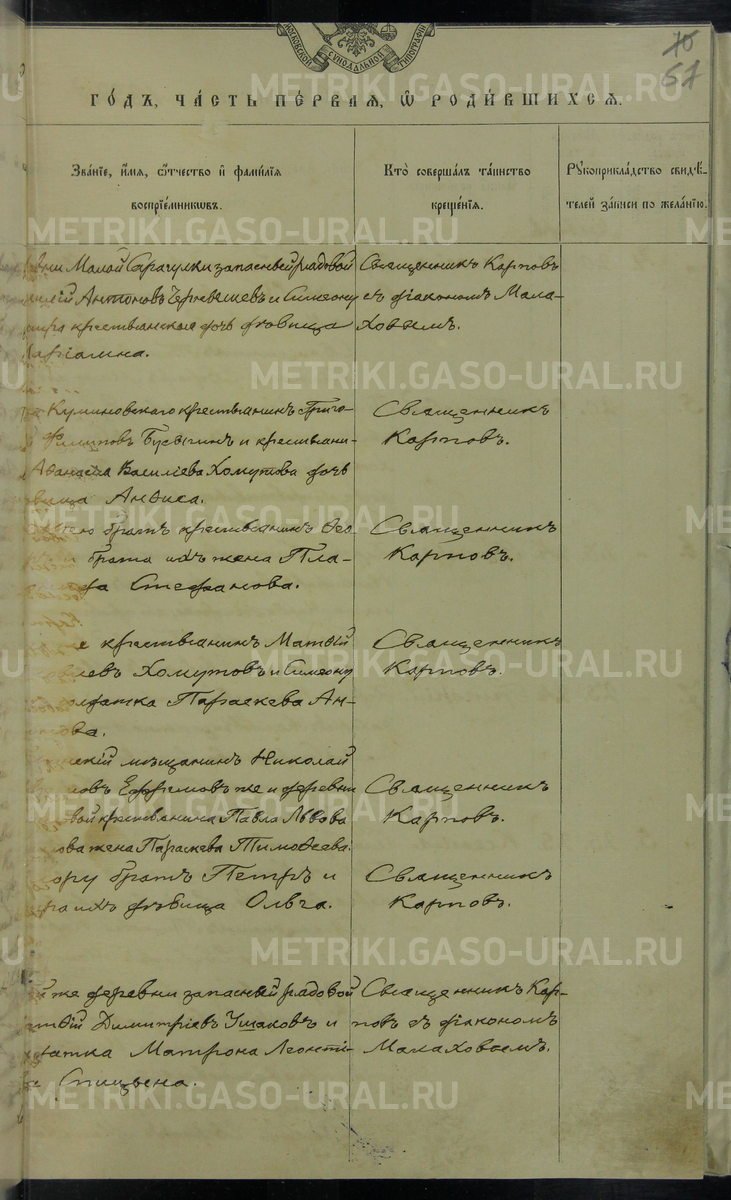 МОСКОВСКОЙ СУНОДАЛЬНОЙ ТИПОГРАФІИ
70
57
ГО́ДЪ, ЧА́СТЬ ПЕ́РВАѦ, Ѡ҆ РОДИ́ВШИХСѦ.
Зва́нїе, и҆́мѧ, ѻ҆́тчество и҆ фами́лїѧ
воспрїе́мникѡвъ.
Кто̀ соверша́лъ та́инство
креще́нїѧ.
Рꙋкоприкла́дство свидѣ́-
телей за́писи по жела́нїю.
Малой Сарагулки запасный рядовой
Антоновъ Чернышевъ и Симеону
крестьянская дочь дѣвица
Священникъ Карповъ
съ діакономъ Мала-
ховымъ.
Куминовскаго крестьянинъ Григо-
Филиповъ Бусыгинъ и крестьяни-
Аѳанасія Василіева Хомутова дочь
Анѳиса.
Священникъ
Карповъ.
братъ крестьянинъ Ѳео-
брата ихъ жена Пла-
Стефанова.
Священникъ
Карповъ.
крестьянинъ Матѳій
Хомутовъ и Симеону
Параскева Ан-
Священникъ
Карповъ.
мѣщанинъ Николай
Ефремовъ же и деревни
крестьянина Павла Львова
жена Параскева Тимоѳеева.
Священникъ
Карповъ.
братъ Петръ и
ихъ дѣвица Ольга.
Священникъ
Карповъ.
же деревни запасный рядовой
Димитріевъ Ушаковъ и
Матрона Леонті-
Спицына.
Священникъ Кар-
повъ съ діакономъ
Малаховымъ.
METRIKI.GASO-URAL.RU